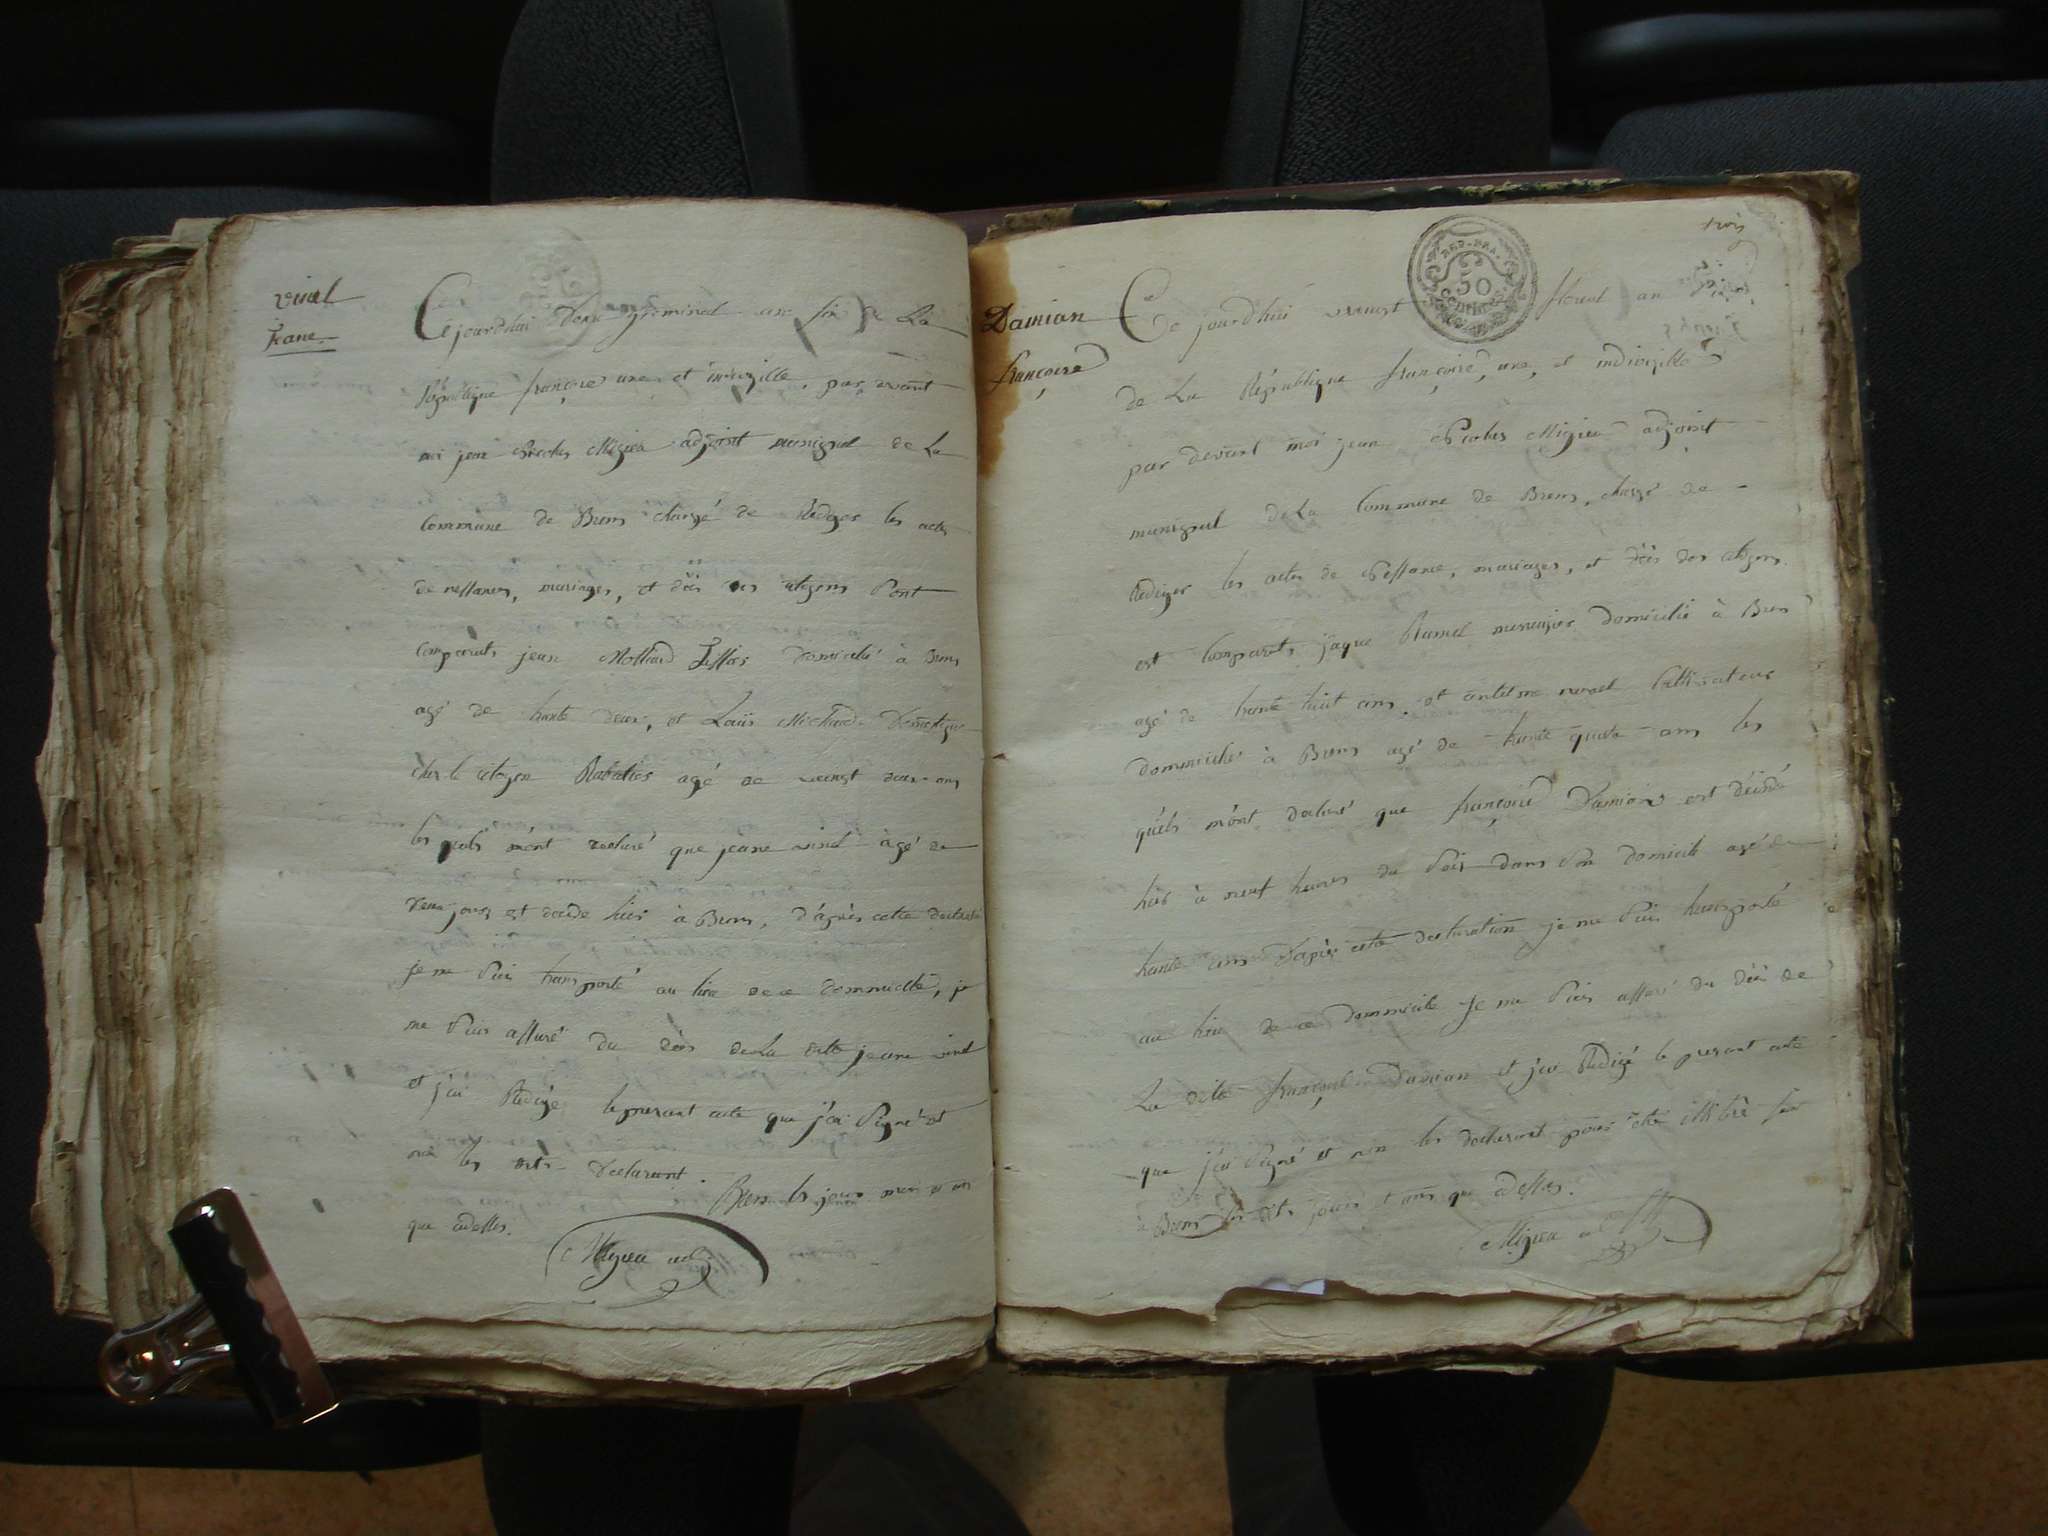 vinel
Jeane
Ce jourdhui Deux germinal an six de La
République françoise une et indivizille, par devant
moi jean Nicolas Migieu adjoint municipal de La
Commune de Brens chargé de Rediger les actes
de nessances, mariages, et déès des citoyens Sont
Comparuts jean Mollard domicilié à Brens
agé de trante deux, et Laüis Michaud Domestique
ches le citoyen Rabalier agé de veingt deux ans
les quels m'ont declaré que jeane vinel agé de
Deux jours est décédé hier à Brens, d'après cette declaration
je me Suis transporté au lieu de ce dommicille, je
me Suis assuré du déés de La ditte jeane vinel
et j'ai Redigé le presant acte que j'ai Signé et
non les dits Declarant. Brens les jour mois et an
que cidesses.
Migieu adj
trois
REP. FRA.
50
CENTIMES
Damian
françoise
Ce jourd'hui veingt floreal an
de La République françoise, une, et indivizille
par devant moi jean Nicolas Migieu adjoint
municipal de La Commune de Brens, chargé de
Rediger les actes de Nessance, mariages, et déés des citoyens
est Comparuts jaque Ramel menuizier domicilié à Brens
agé de trante huit ans, et antelme Cultivateur
dommicilié à Brens agé de trante quatre ans les
quels m'ont declaré que françoise Damian est décédé
hier à neuf heures du Soir dans Son domicile agé de
trante ans D'après cette declaration je me Suis transporté
au lieu de ce dommicile je me Suis assuré du déés de
La dite françoise Damian et j'ai Redigé le presant acte
que j'ai Signé et non les declarant pour être illitéré fait
à Brens les dits jours et ans que cidesses.
Migieu adj